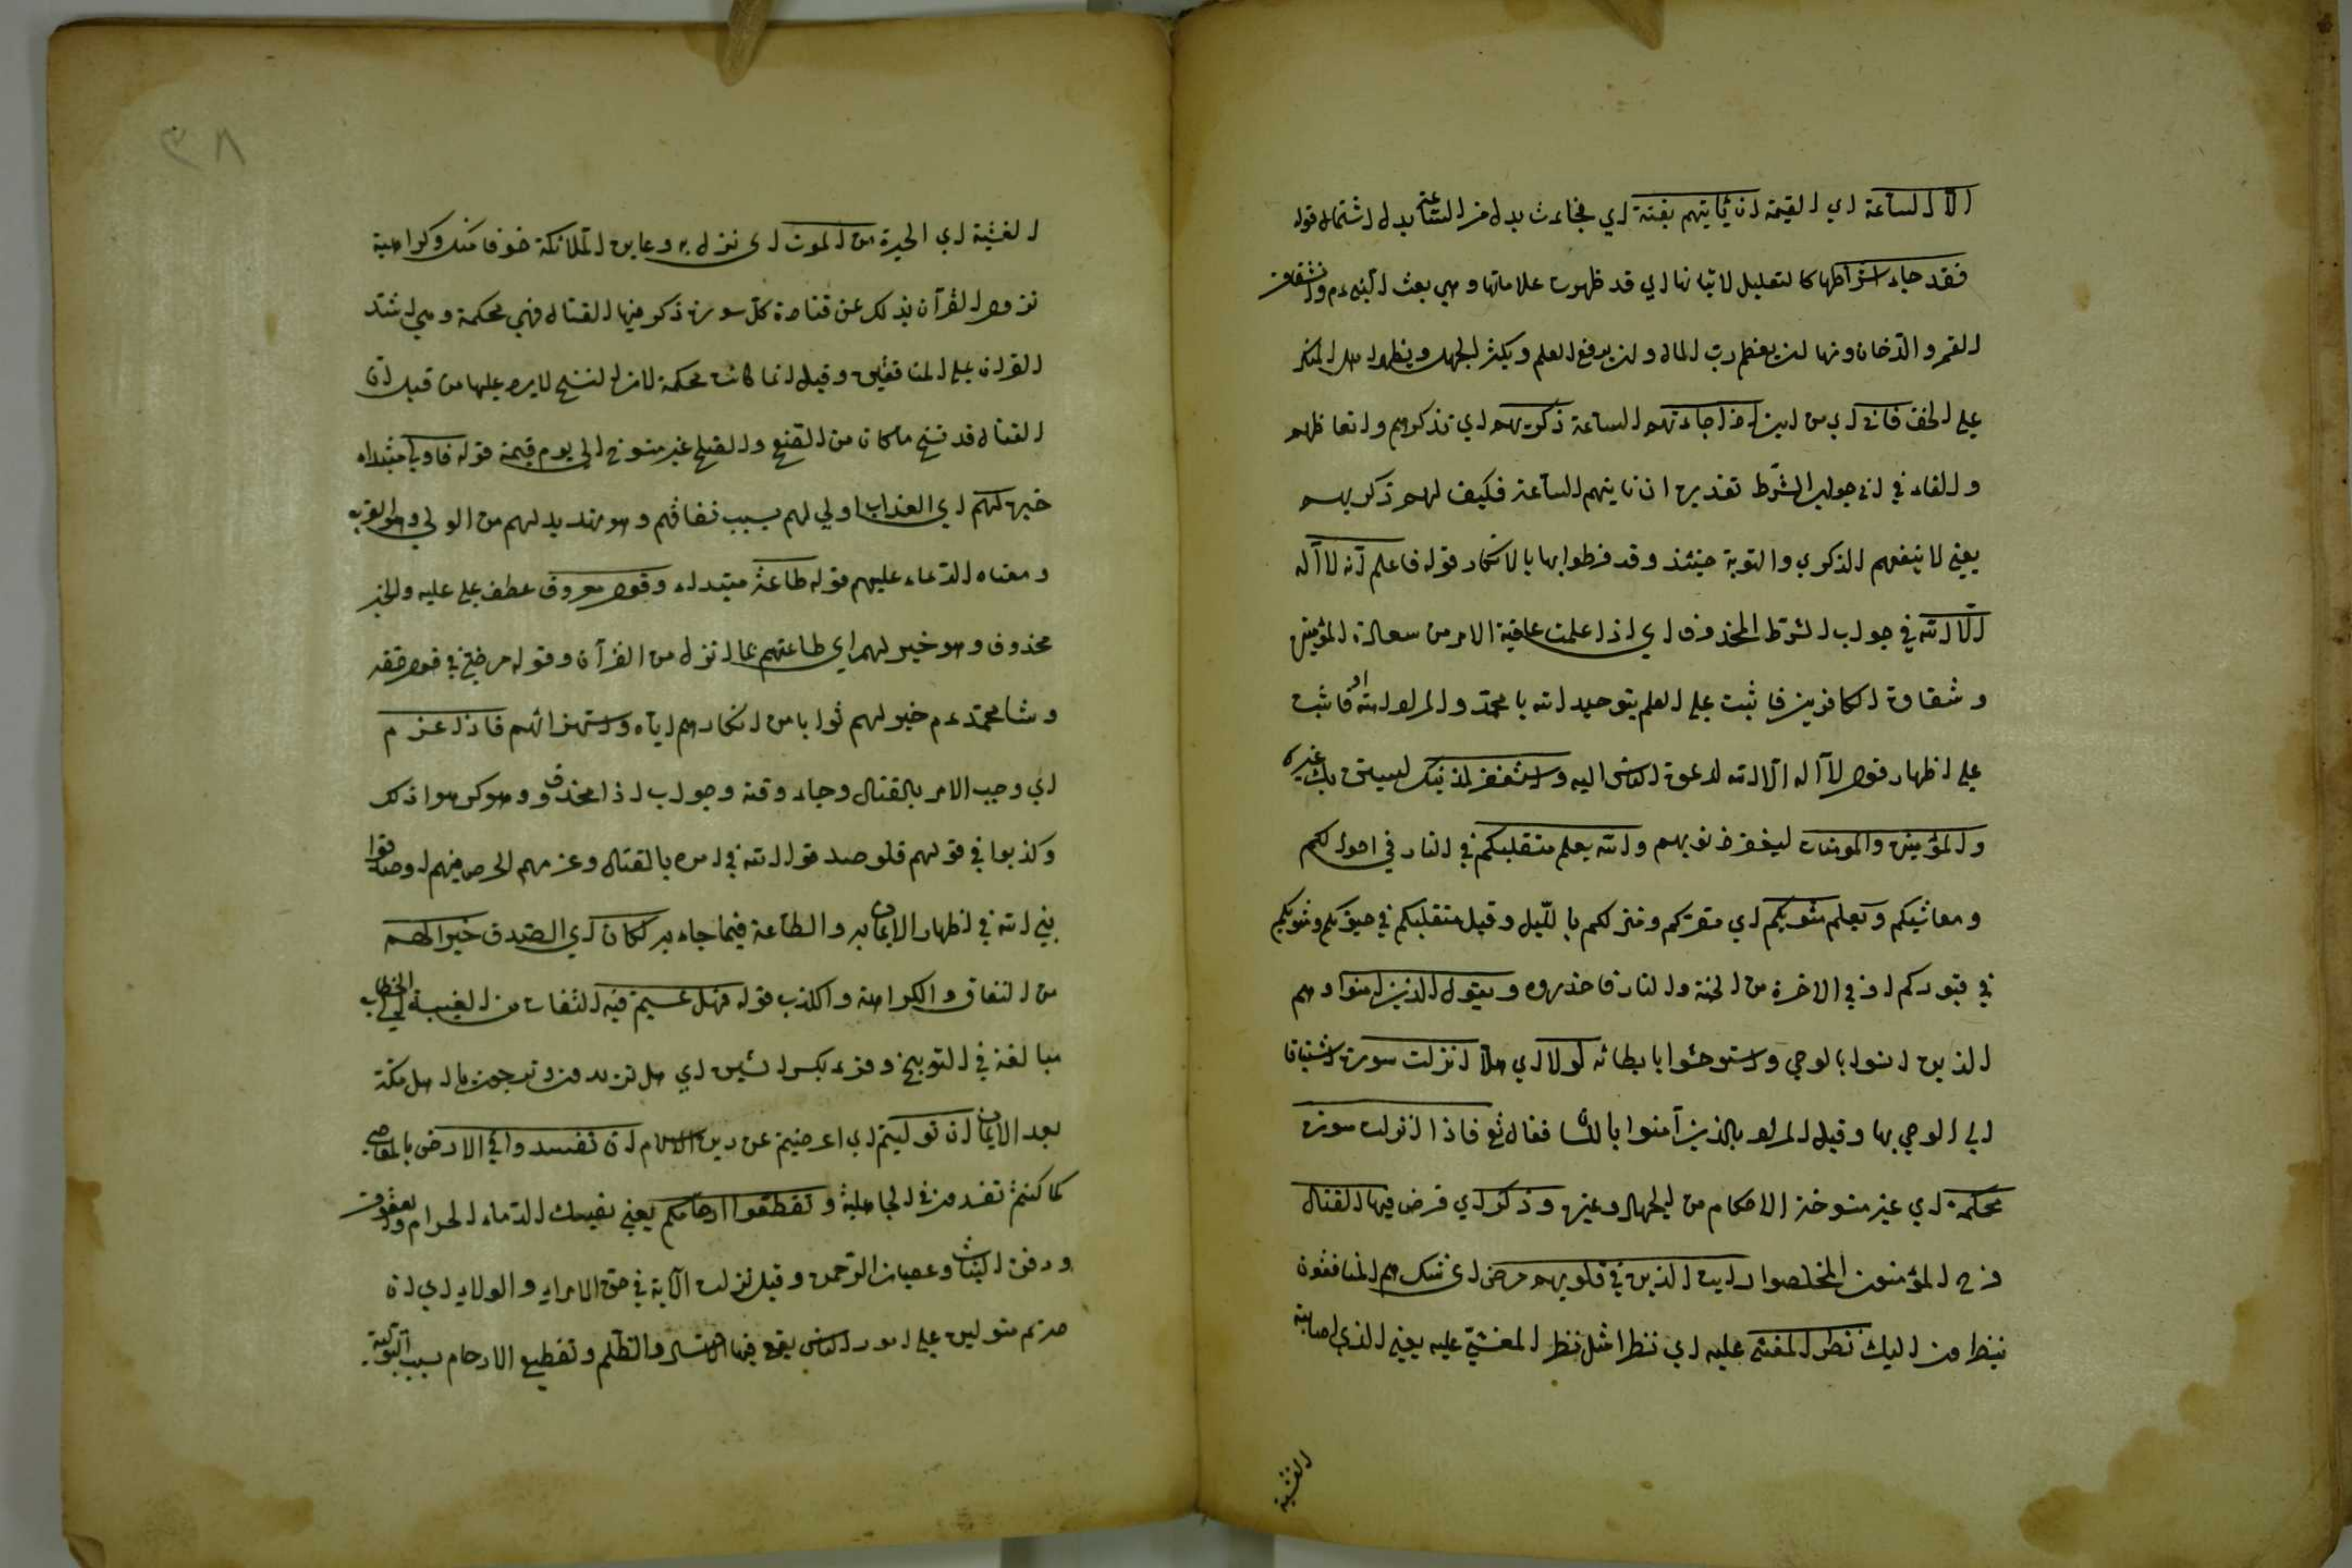 الا الساعة اي القيمة ان تأتيهم بغتة اي فجاءت بدل من الساعة بدل اشتمال قوله
فقد جاء اشراطها كالتعليل لاتيانها اي قد ظهرت علاماتها وهي بعث النبي عم وانشقاق
القمر والدخان ومنها ان يعظم رب المال وان يرفع العلم ويكثر الجهل ويظهر اهل المنكر
على الحق فاني اي من اين اذا جاءتهم الساعة ذكريهم اي تذكرهم واتعاظهم
والفاء في اني جواب الشرط تقديره ان تأتيهم الساعة فكيف لهم ذكريهم
يعني لا ينفعهم الذكري والتوبة حينئذ وقد فرطوا بها بالانكار قوله فاعلم انه لا اله
الا الله في جواب الشرط المحذوف اي اذا علمت عاقبة الامر من سعادة المؤمنين
وشقاوة الكافرين فاثبت على العلم بتوحيد الله يا محمد والمراد امته او فاثبت
على اظهار قول لا اله الا الله لدعوة الناس اليه واستغفر لذنبك ليستن بك غيرك
وللمؤمنين والمومنات ليغفر ذنوبهم والله يعلم متقلبكم في النار في احوالكم
ومعاشيكم ويعلم مثويكم اي مقركم ومنزلكم بالليل وقيل متقلبكم في حيوتكم ومثويكم
في قبوركم او في الاخرة من الجنة والنار فاحذروه ويقول الذين امنوا وهم
الذين انسوا بالوحي واستوحشوا بابطائه لولا اي هلا انزلت سورة اشتياقا
الي الوحي بها وقيل المراد بالذين آمنوا باللسان فقال تع فاذا انزلت سورة
محكمة اي غير منسوخة الاحكام من الجهاد وغيره وذكر اي فرض فيها القتال
فرح المؤمنون المخلصوا رايت الذين في قلوبهم مرض اي شك هم المنافقون
ينظرون اليك نظر المغشي عليه اي نظرا مثل نظر المغشي عليه يعني الذي اصابته
الغشية
٣٨
الغشية اي الحيرة من الموت اي نزل به وعاين الملائكة خوفا منك وكراهية
نزول القرآن بذلك عن قتادة كل سورة ذكر فيها القتال فهي محكمة وهي اشد
القرآن على المنافقين وقيل انما كانت محكمة لان النسخ لا يرد عليها من قبل ان
القتال قد نسخ ما كان من الصفح والصلح غير منسوخ الي يوم قيمة قوله فاولي مبتداء
خبره لهم اي العذاب اولي لهم بسبب نفاقهم وهو تهديد لهم من الولي وهو القرب
ومعناه الدعاء عليهم قوله طاعة مبتداء وقول معروف عطف على عليه والخبر
محذوف وهو خير لهم اي طاعتهم بما انزل من القرآن وقوله مرضي في قول حقه
وشا محمد عم خير لهم ثوابا من انكارهم اياه واستهزائهم فاذا عزم
اي وجب الامر بالقتال وجاء وقته وجواب اذا محذوف وهو كرهوا ذلك
وكذبوا في قولهم فلو صدقوا الله في امره بالقتال وعزمهم الحرص فيهم او صدقوا
بني الله في اظهار الايمان به والطاعة فيما جاء به لكان اي الصدق خيرا لهم
من النفاق والكراهة والكذب قوله فهل عسيتم فيه التفات من الغيبة الي الخطاب
مبالغة في التوبيخ وقرء بكسر السين اي هل تريدون وترجون يا اهل مكة
بعد الايمان ان توليتم اي اعرضتم عن دين الاسلام ان تفسدوا في الارض بالمعاصي
كما كنتم تفسدون في الجاهلية وتقطعوا ارحامكم يعني بسفك الدماء الحرام والعقوق
ودفن البنات وعصيان الرحمن وقيل نزلت الآية في حق الامراء والولاة اي ان
صرتم متولين على امور الناس يقع فيها الفساد والتظلم وتقطيع الارحام بسبب التولية